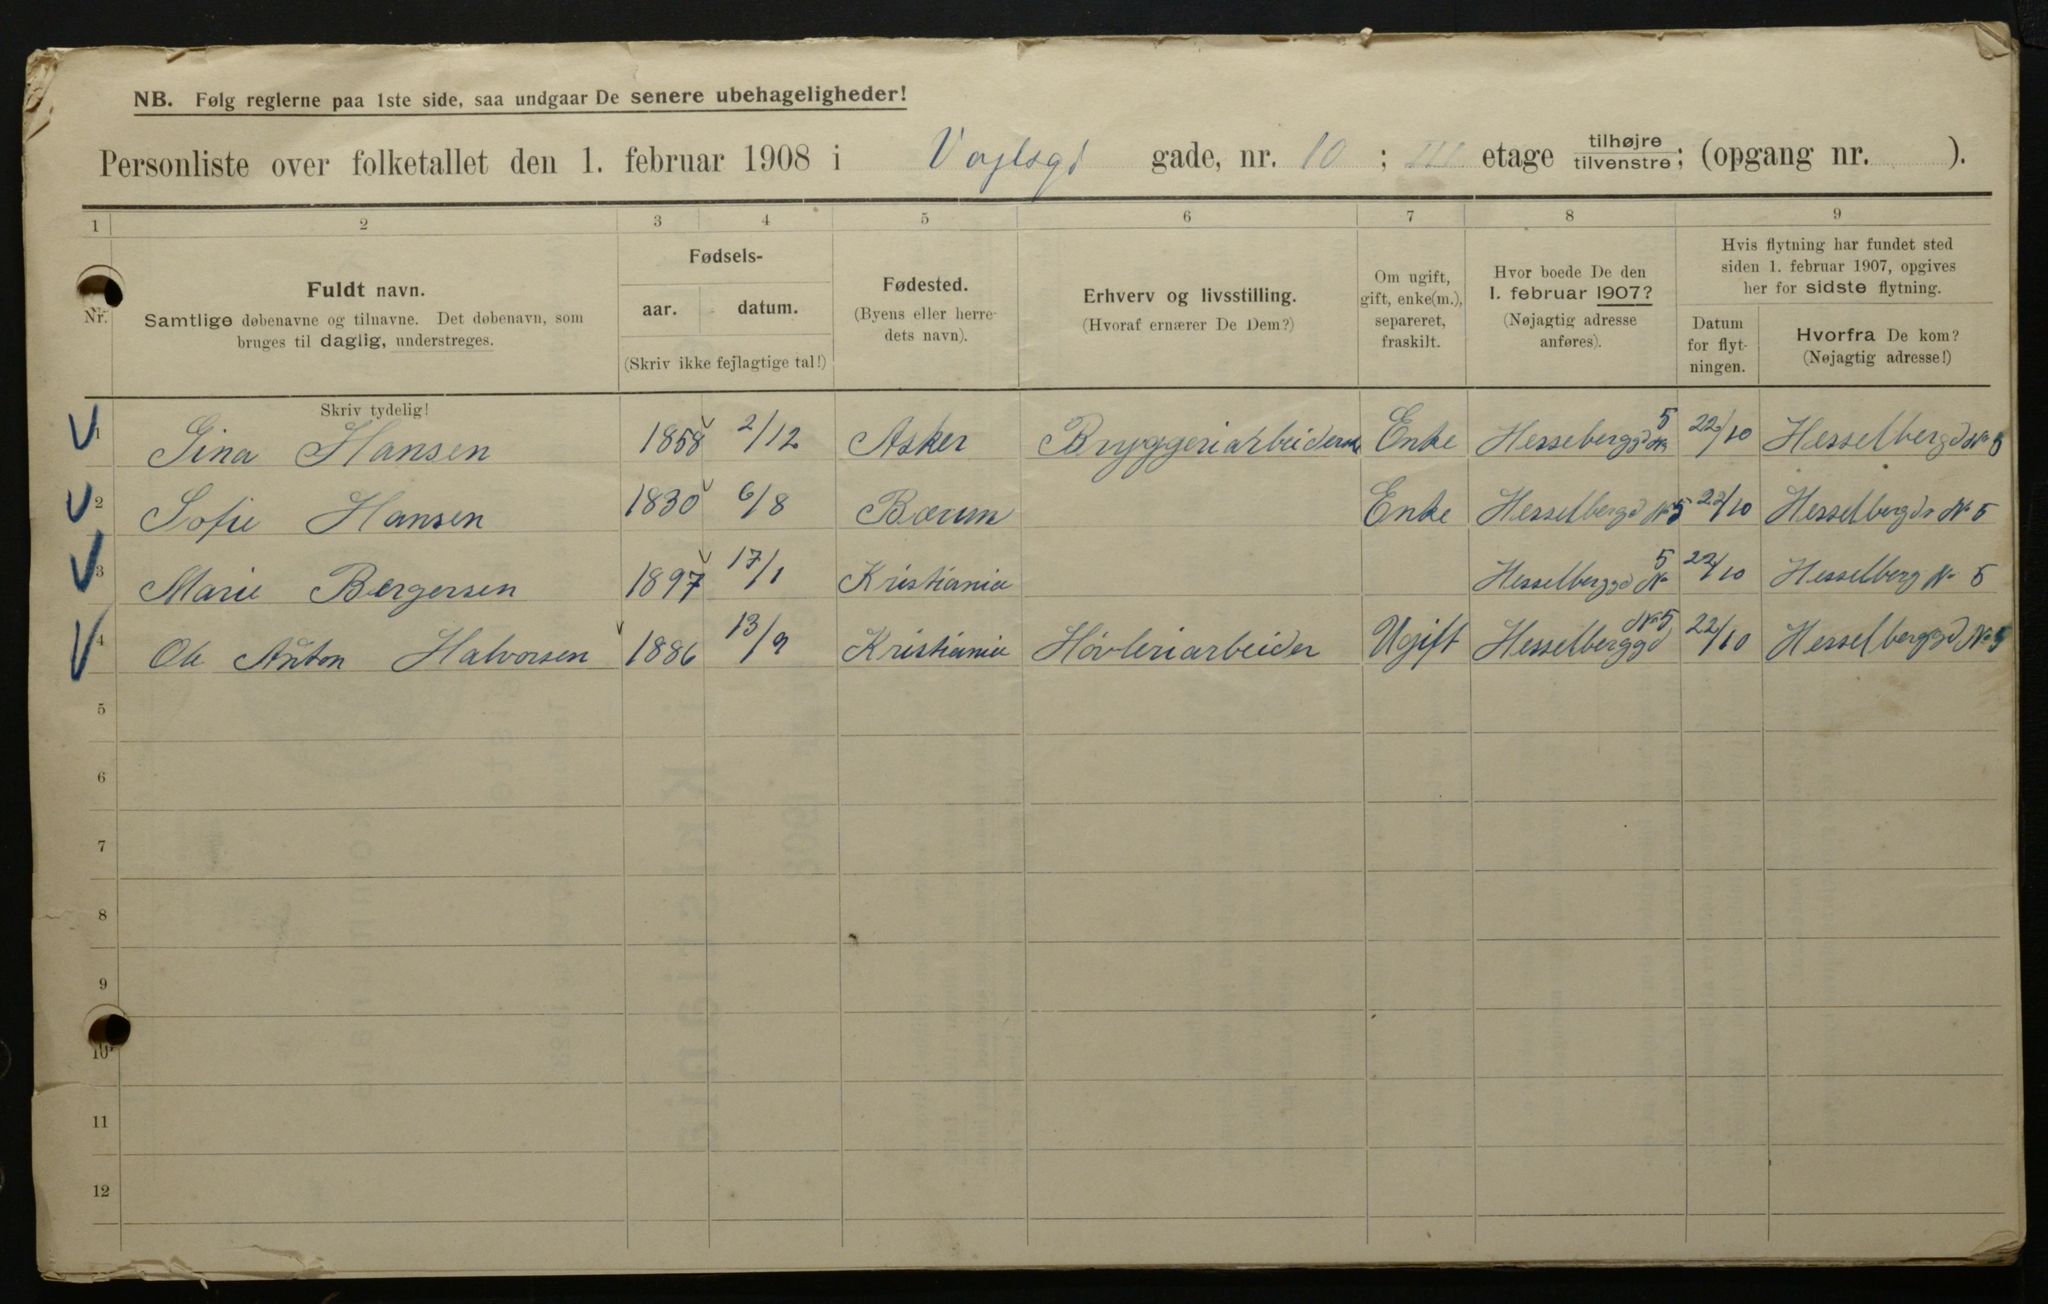 NB. Følg reglerne paa 1ste side, saa undgaar De senere ubehageligheder!
Personliste over folketallet den 1. februar 1908 i Vogtsgd gade, nr. 10 ; III etage tilhøjre tilvenstre ; (opgang nr. ).
1 2 3 4 5 6 7 8 9
Nr. Fuldt navn. Samtlige døbenavne og tilnavne. Det døbenavn, som bruges til daglig, understreges.
Fødsels- aar. datum. (Skriv ikke fejlagtige tal!)
Fødested. (Byens eller herredets navn).
Erhverv og livsstilling. (Hvoraf ernærer De Dem?)
Om ugift, gift, enke(m.), separeret, fraskilt.
Hvor boede De den 1. februar 1907? (Nøjagtig adresse anføres).
Hvis flytning har fundet sted siden 1. februar 1907, opgives her for sidste flytning.
Datum for flytningen.
Hvorfra De kom? (Nøjagtig adresse!)
Skriv tydelig!
1 Gina Hansen 1858 2/12 Asker Bryggeriarbeiderske Enke Hesseberggd No 5 22/10 Hesselbergd No 5
2 Sofie Hansen 1830 6/8 Bærum Enke Hesselbergd No 5 22/10 Hesselbergd No 5
3 Marie Bergersen 1897 17/1 Kristiania Hesselberggd No 5 22/10 Hesselberg No 5
4 Ole Anton Halvorsen 1886 13/9 Kristiania Høvleriarbeider Ugift Hesselberggd No 5 22/10 Hesselberggd No 5
5
6
7
8
9
10
11
12